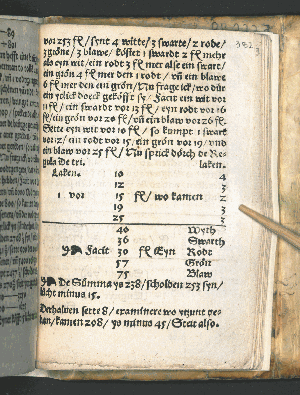 vor 253 fl/ synt 4 witte/ 3 swarte/ 2 rode/
3 gröne/ 3 blawe/ köstet 1 swardt 2 fl mehr
als eyn wit/ ein rodt 3 fl mer alse ein swart/
ein grön 4 fl mer den 1 rodt/ vn̄ ein blawe
6 fl mer den ein grön/ Nu frage ick/ wo dür
ein yslick doeck gekofft sy. Facit ein wit vor
fl/ ein swardt vor 12 fl/ eyn rodt vor 16
fl/ ein grön vor 20 fl/ vn̄ ein blaw vor 26 fl.
Sette eyn wit vor 10 fl/ so kumpt 1 swart
vor 12/ ein rodt vor 15/ ein grön vor 19/ vnd
ein blaw vor 25 fl/ Nu sprick dörch de Re-
gula de tri. laken.
Laken. 10 4
12 3
1 vor 15 fl/ wo kamen 2
19 3
25 3
40 Wyth
36 Swarth
Facit 30 fl Eyn Rodt
57 Grön
75 Blaw
De Summa ys 238/ scholden 253 syn/
lücht minus 15.
Derhalven sette 8/ examinere wo vtzunt ge-
dan/ kamen 208/ ys minus 45/ Stat also.